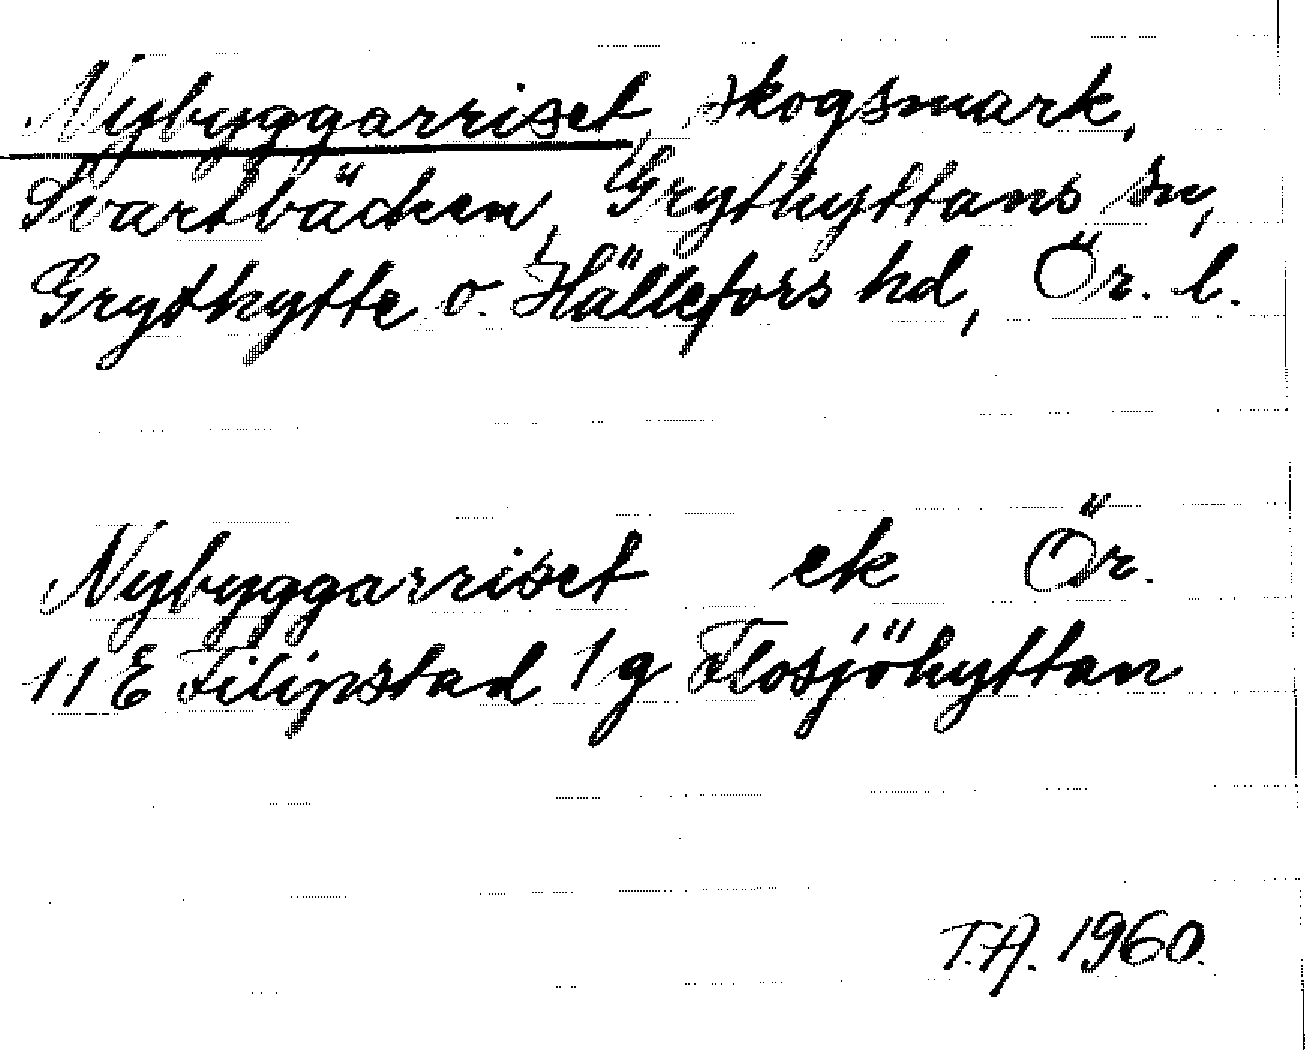 Nybyggarriset, skogsmark,
Svartbäcken, Grythyttans sn,
Grythytte o. Hällefors hd, Ör. l.
Nybyggarriset ek Ör.
11E Filipstad 1g Flosjöhyttan
T.A. 1960.